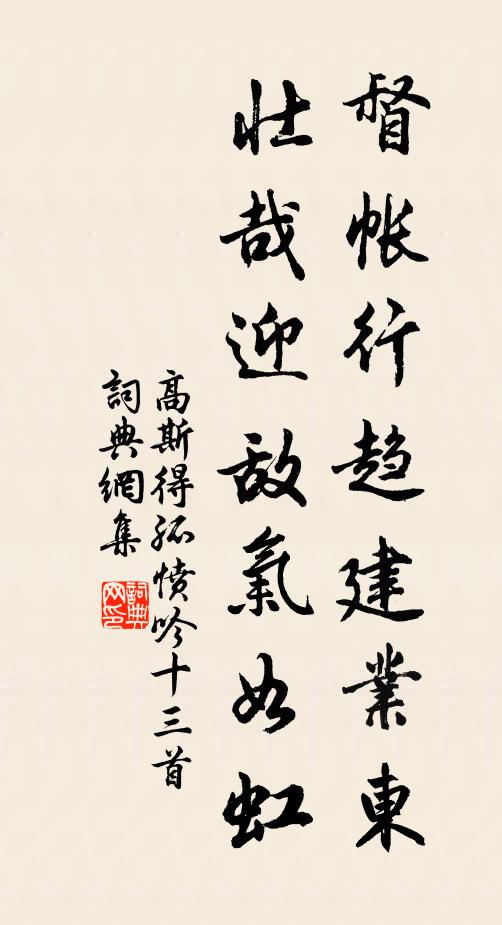 督帳行趋建業東
壮哉迎敌氣如虹
高斯得孤憤吟十三首
詞典網集
詞典网印